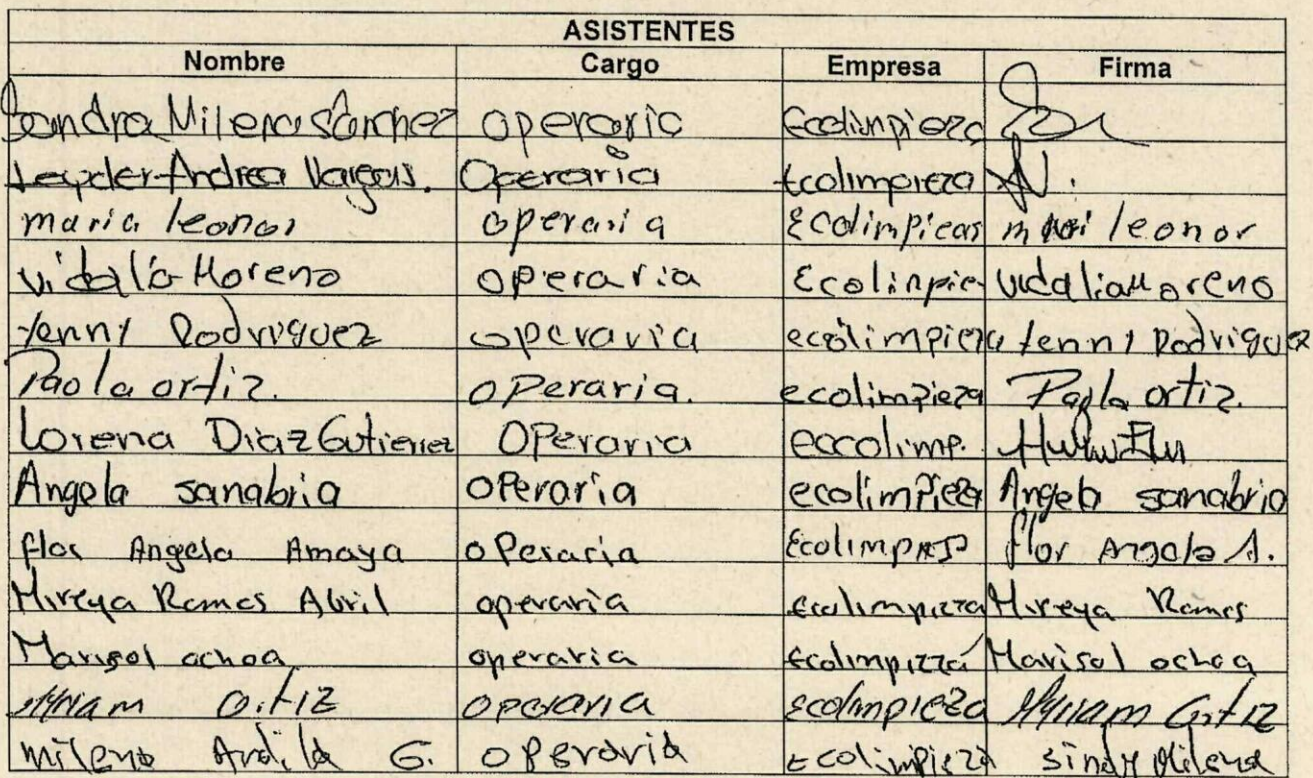 ASISTENTES
Nombre Cargo Empresa Firma
Sandra Milena Sánchez operario Ecolimpieza
Leyder Andrea Vargas. Operaria Ecolimpieza
maria leonor operaria Ecolimpieas leonor
Vidalia Moreno operaria Ecolinpie Vidalia Moreno
Yenny Rodriguez operaria ecolimpieza Yenny Rodriguez
Paola ortiz. operaria. ecolimpieza Paola ortiz.
Lorena Diaz Gutierrez Operaria eccolimp.
Angela sanabria operaria ecolimpieza Angela sanabria
flor Angela Amaya operaria Flor Angela A.
Mireya Ramos Abril operaria Ecolimpieza Mireya Ramos
Marisol ochoa operaria Ecolimpieza Marisol ochoa
Myriam Ortiz operaria Ecolimpieza Myriam Ortiz
milena Ardila G. operaria Ecolimpieza Milena